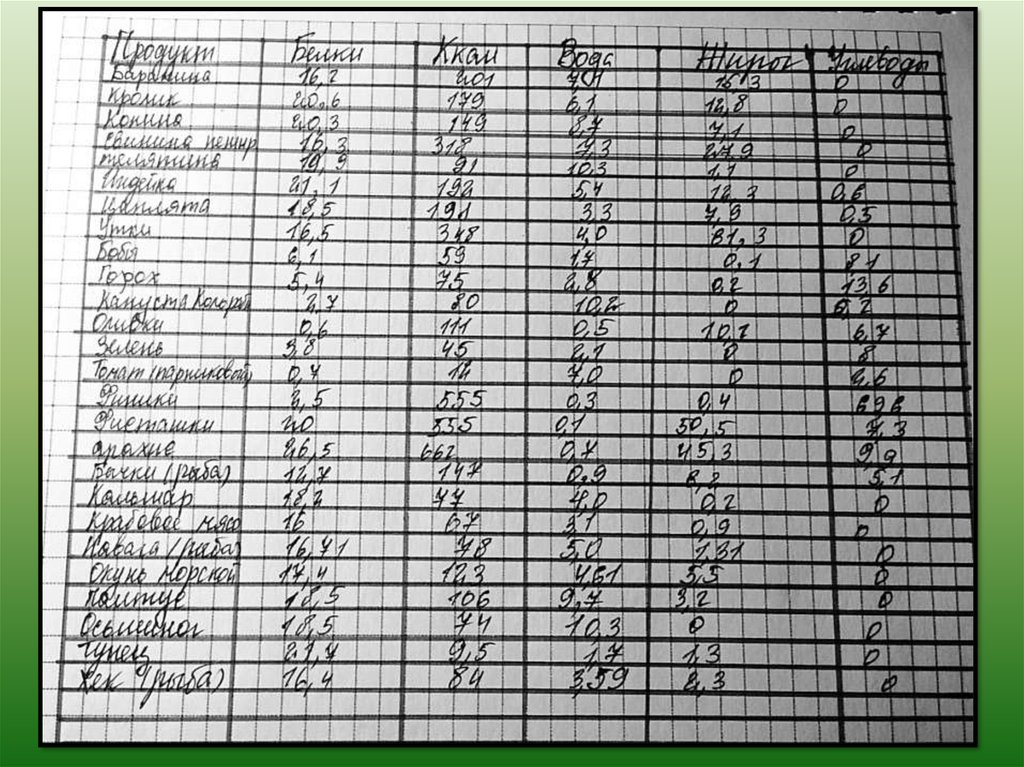 Продукт Белки Ккал Вода Жиров Углеводы
Баранина 16,2 201 15,3 0
Кролик 20,6 179 6,1 12,8 0
Конина 20,3 149 8,7 7,1 0
Свинина 16,3 318 7,3 27,9 0
телятина 19,9 91 10,3 1,1 0
Индейка 21,1 192 5,4 12,3 0,6
Цыплята 18,5 191 3,3 7,9 0,5
Утки 16,5 348 4,0 61,3 0
Бобы 6,1 59 1,7 0,1 81
Горох 5,4 75 2,8 0,2 13,6
Капуста 2,7 20 10,2 0 6,2
Оливки 0,6 111 0,5 10,7 6,7
Зелень 3,8 45 2,1 0 8
Томат (парниковый) 0,7 12 7,0 0 2,6
Финики 2,5 555 0,3 0,4 696
Фисташки 20 555 0,1 50,5 7,3
арахис 26,5 662 0,7 45,3 9,9
Бычки (рыба) 12,7 147 0,9 8,2 5,1
Кальмар 18,2 77 4,0 0,2 0
Крабовое мясо 16 67 3,1 0,9 0
Навага (рыба) 16,71 78 5,0 1,31 0
Окунь морской 17,4 123 4,61 5,5 0
Палтус 18,5 106 9,7 3,2 0
Осьминог 18,5 74 10,3 0 0
Тунец 21,7 9,5 1,7 1,3 0
Хек (рыба) 16,4 84 3,59 2,3 0